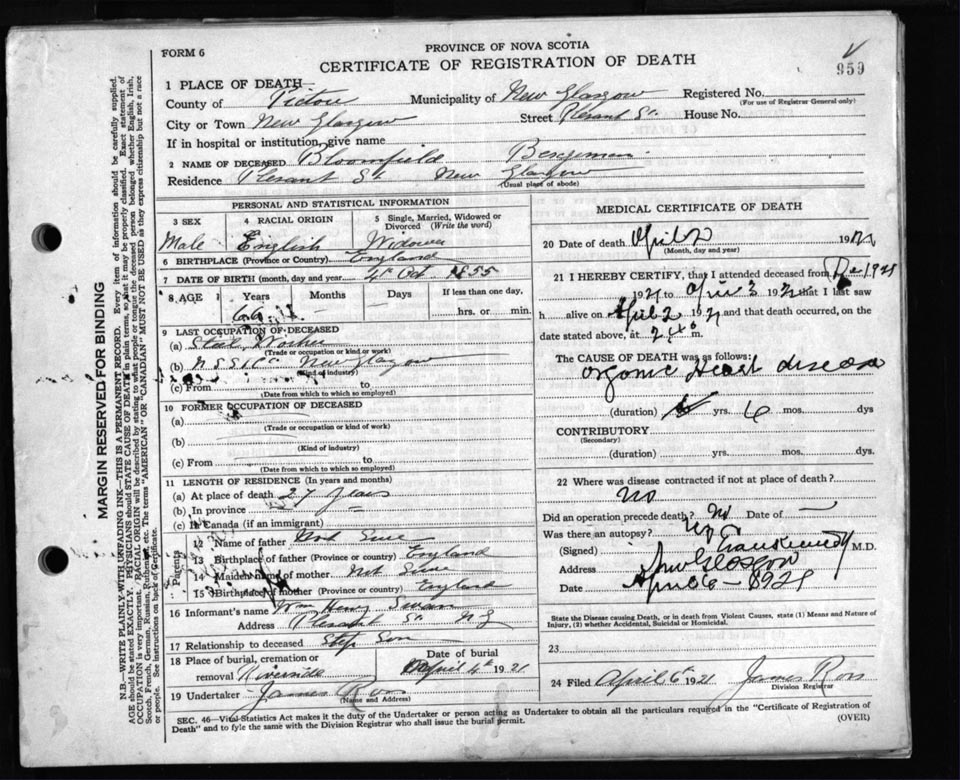 FORM 6
PROVINCE OF NOVA SCOTIA
CERTIFICATE OF REGISTRATION OF DEATH
959
1 PLACE OF DEATH
County of Pictou Municipality of New Glasgow Registered No.
(For use of Registrar General only)
City or Town New Glasgow Street Plesant St. House No.
If in hospital or institution, give name
2 NAME OF DECEASED Bloomfield
Residence Plesant St New Glasgow
(Usual place of abode)
PERSONAL AND STATISTICAL INFORMATION
3 SEX 4 RACIAL ORIGIN 5 Single, Married, Widowed or Divorced (Write the word)
Male English Widower
6 BIRTHPLACE (Province or Country) England
7 DATE OF BIRTH (month, day and year) 4th Oct 1855
8 AGE Years Months Days If less than one day,
66 hrs. or min.
9 LAST OCCUPATION OF DECEASED
(a) Steel Worker
(Trade or occupation or kind of work)
(b) New Glasgow
(Kind of industry)
(c) From to
(Date from which to which so employed)
10 FORMER OCCUPATION OF DECEASED
(a)
(Trade or occupation or kind of work)
(b)
(Kind of industry)
(c) From to
(Date from which to which so employed)
11 LENGTH OF RESIDENCE (In years and months)
(a) At place of death 27 years
(b) In province
(c) In Canada (if an immigrant)
Parents
12 Name of father Not Sure
13 Birthplace of father England
14 Maiden name of mother Not Sure
15 Birthplace of mother England
16 Informant's name Wm Henry Swan
Address Plesant St N G
17 Relationship to deceased Step Son
18 Place of burial, cremation or removal Riverside
Date of burial April 4th 1921
19 Undertaker James Ross
(Name and Address)
MEDICAL CERTIFICATE OF DEATH
20 Date of death April 2 1921
(Month, day and year)
21 I HEREBY CERTIFY, that I attended deceased from
1921 to April 3 1921 that I last saw
h alive on April 2 1921 and that death occurred, on the
date stated above, at m.
The CAUSE OF DEATH was as follows:
Organic Heart disease
(duration) yrs. 6 mos. dys
CONTRIBUTORY
(Secondary)
(duration) yrs. mos. dys.
22 Where was disease contracted if not at place of death?
No
Did an operation precede death? No Date of
Was there an autopsy? No
(Signed) M.D.
Address New Glasgow
Date April 6 - 1921
State the Disease causing Death, or in death from Violent Causes, state (1) Means and Nature of Injury, (2) whether Accidental, Suicidal or Homicidal.
23
24 Filed April 6 1921 James Ross
Division Registrar
SEC. 46—Vital Statistics Act makes it the duty of the Undertaker or person acting as Undertaker to obtain all the particulars required in the "Certificate of Registration of Death" and to fyle the same with the Division Registrar who shall issue the burial permit.
(OVER)
MARGIN RESERVED FOR BINDING
N.B.—WRITE PLAINLY WITH UNFADING INK—THIS IS A PERMANENT RECORD. Every item of information should be carefully supplied.
AGE should be stated EXACTLY. PHYSICIANS should STATE CAUSE OF DEATH in plain terms, so that it may be properly classified. Exact statement of
OCCUPATION is very important. RACIAL ORIGIN will be described by stating to what people or tongue the deceased person belonged whether English, Irish,
Scotch, French, German, Russian, Ruthenian, etc. The terms "AMERICAN" OR "CANADIAN" MUST NOT BE USED as they express citizenship but not a race
or people. See instructions on back of Certificate.